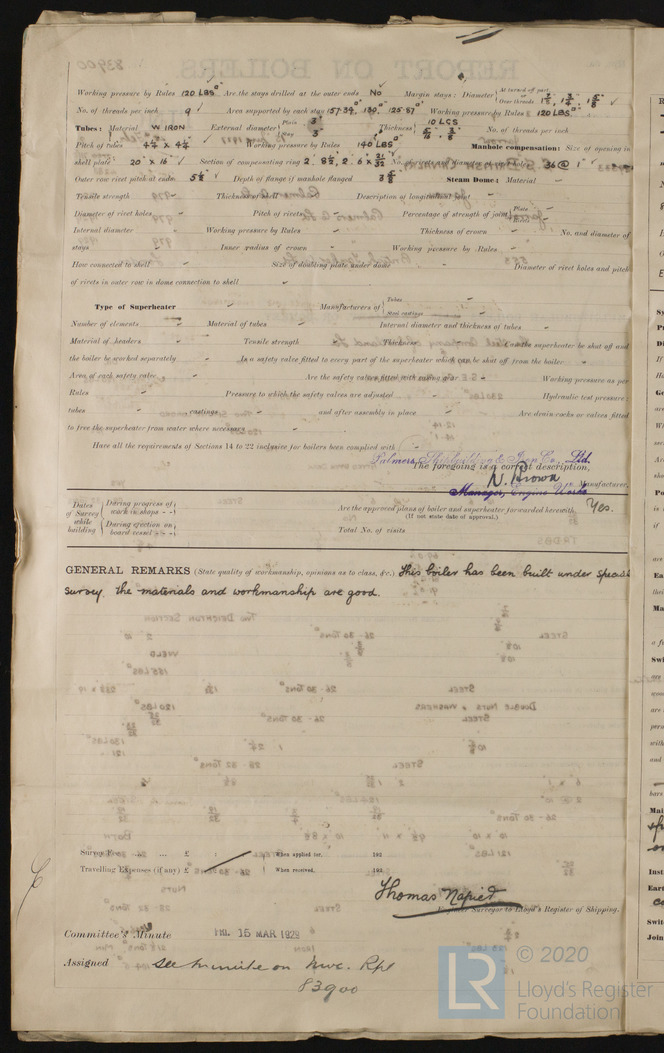 Working pressure by Rules 120 LBS □" Are the stays drilled at the outer ends No Margin stays: Diameter { At turned off part, or Over threads 1 7/8", 1 3/4", 1 5/8"
No. of threads per inch 9 Area supported by each stay 157.39", 130", 125.87" Working pressure by Rules 120 LBS □"
Tubes: Material W IRON External diameter { Plain 3" Stay 3" Thickness { 10 LCS 5/16", 3/8" No. of threads per inch
Pitch of tubes 4 1/4" x 4 1/4" Working pressure by Rules 140 LBS Manhole compensation: Size of opening in
shell plate 20" x 16" Section of compensating ring No. of rivets and diameter of rivet holes 36 @ 1"
Outer row rivet pitch at ends Depth of flange if manhole flanged Steam Dome: Material -
Tensile strength - Thickness of shell Description of longitudinal joint -
Diameter of rivet holes - Pitch of rivets - Percentage of strength of joint { Plate Rivets
Internal diameter - Working pressure by Rules - Thickness of crown - No. and diameter of
stays - Inner radius of crown - Working pressure by Rules -
How connected to shell - Size of doubling plate under dome - Diameter of rivet holes and pitch
of rivets in outer row in dome connection to shell -
Type of Superheater - Manufacturers of { Tubes - Steel castings -
Number of elements - Material of tubes - Internal diameter and thickness of tubes -
Material of headers - Tensile strength - Thickness - Can the superheater be shut off and
the boiler be worked separately - Is a safety valve fitted to every part of the superheater which can be shut off from the boiler -
Area of each safety valve - Are the safety valves fitted with easing gear - Working pressure as per
Rules - Pressure to which the safety valves are adjusted - Hydraulic test pressure:
tubes - castings - and after assembly in place - Are drain cocks or valves fitted
to free the superheater from water where necessary -
Have all the requirements of Sections 14 to 22 inclusive for boilers been complied with -
Palmers Shipbuilding & Iron Co., Ltd.
The foregoing is a correct description,
N. Brown Manufacturer.
Manager, Engine Works
Dates of Survey while building { During progress of work in shops - - During erection on board vessel - - -
Are the approved plans of boiler and superheater forwarded herewith Yes.
(If not state date of approval.)
Total No. of visits
GENERAL REMARKS (State quality of workmanship, opinions as to class, &c.) This boiler has been built under special
survey. The materials and workmanship are good.
Survey Fee ... ... £ : : When applied for, 192
Travelling Expenses (if any) £ : : When received, 192
Thomas Napier
Engineer Surveyor to Lloyd's Register of Shipping.
Committee's Minute FRI. 15 MAR 1929
Assigned See minute on Nwc. Rpt
83900
© 2020
LR
Lloyd's Register
Foundation